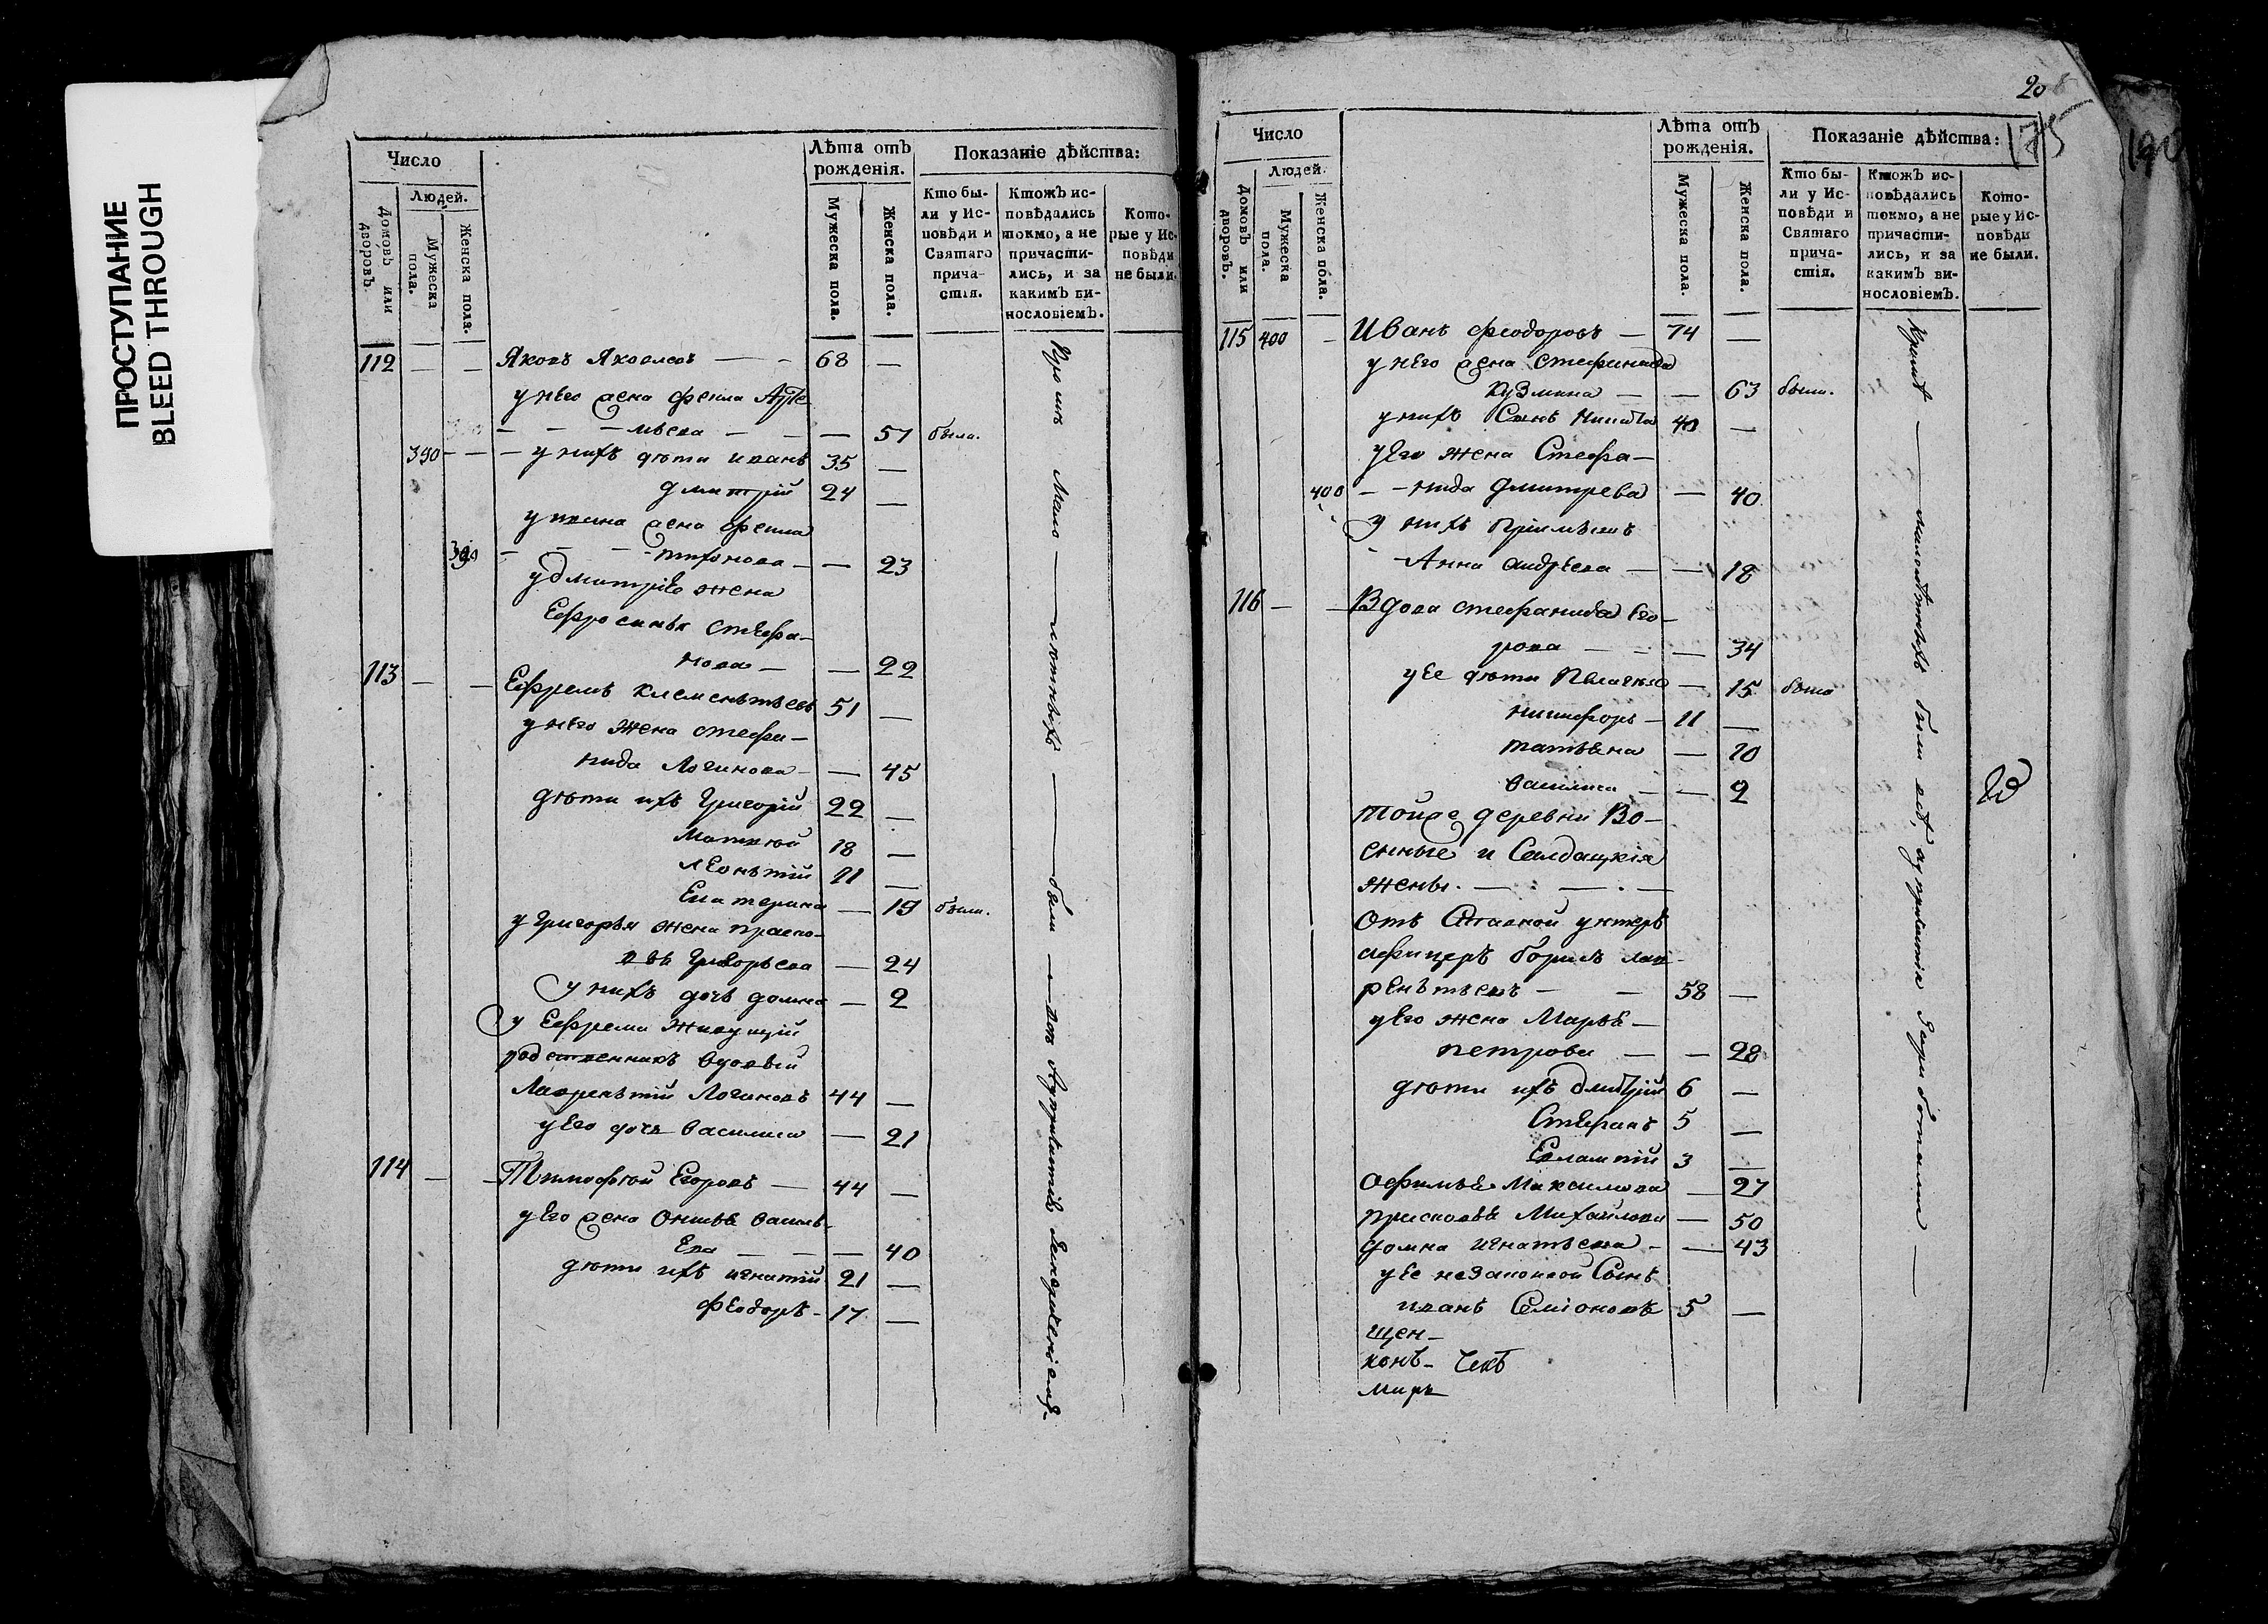 ПРОСТУПАНИЕ
BLEED THROUGH
Число
Людей.
Домовъ или дворовъ.
Мужеска пола.
Женска пола.
Лѣта отъ рожденія.
Мужеска пола.
Женска пола.
Показаніе дѣйства:
Кто бы-
ли у Ис-
повѣди и
Святаго
прича-
стія.
Ктожъ ис-
повѣдались
токмо, а не
причасти-
лись, и за
какимъ ви-
нословіемъ.
Кото-
рые у Ис-
повѣди
не были.
112 — — Яковъ Яковлевъ — - 68 —
у него жена фекла Арте
- - - мьева - - — 57 были.
390 - - - у нихъ дѣти иванъ 35 —
дмитрій 24 —
у ивана жена фекла
390 - - - тихонова - — 23
у дмитрія жена
Ефросинья стефа-
нова - — 22
113 — — Ефремъ клементьевъ 51 —
у него жена стефа-
нида Логинова - — 45
дѣти ихъ Григорій 22 —
Матвѣй 18 —
леонтій 11 —
Екатерина — 19 были.
у Григорья жена праско-
вья Григорьева — 24
у нихъ дочь домна — 2
у Ефрема живущій
родственникъ вдовый
Лаврентій Логиновъ 44 —
у его дочь василиса — 21
114 — - Тимофѣй Егоровъ — 44 —
у его жена василь-
Ева — — — 40
дѣти ихъ игнатій 21 —
феодоръ - 17 —
Кромѣ Мало — лѣтныхъ — были
208
175
Число
Людей.
Домовъ или дворовъ.
Мужеска пола.
Женска пола.
Лѣта отъ рожденія.
Мужеска пола.
Женска пола.
Показаніе дѣйства:
Кто бы-
ли у Ис-
повѣди и
Святаго
прича-
стія.
Ктожъ ис-
повѣдались
токмо, а не
причасти-
лись, и за
какимъ ви-
нословіемъ.
Кото-
рые у Ис-
повѣди
не были.
115 400 - Иванъ феодоровъ — 74 —
у него жена стефанида
кузмина — — 63 были.
у нихъ Сынъ Никита 40 —
у его жена Стефа-
400 - - нида дмитрева — 40
у нихъ
- Анна андреева — — 18
116 — — Вдова стефанида Его-
рова - - — 34
у ее дѣти Пелагея — 15 были
никифоръ - 11 —
татьяна — 10
василиса — — 2
тойже деревни Во-
енные и Салдацкія
жены. — . — . —
Отъ Ставной унтеръ
афицеръ борисъ лав-
рентьевъ - — 58 —
у его жена Марья -
петрова — — 28
дѣти ихъ дмитрій 6 —
Стефанъ 5 —
Евлампій 3 —
Афимья Максимова — 27
прасковья Михайлова — 50
домна игнатьева - — 43
у ее незаконной Сынъ
иванъ Семіоновъ 5 —
щен-
конъ-
миръ
Кромѣ — малолѣтныхъ были всѣ,